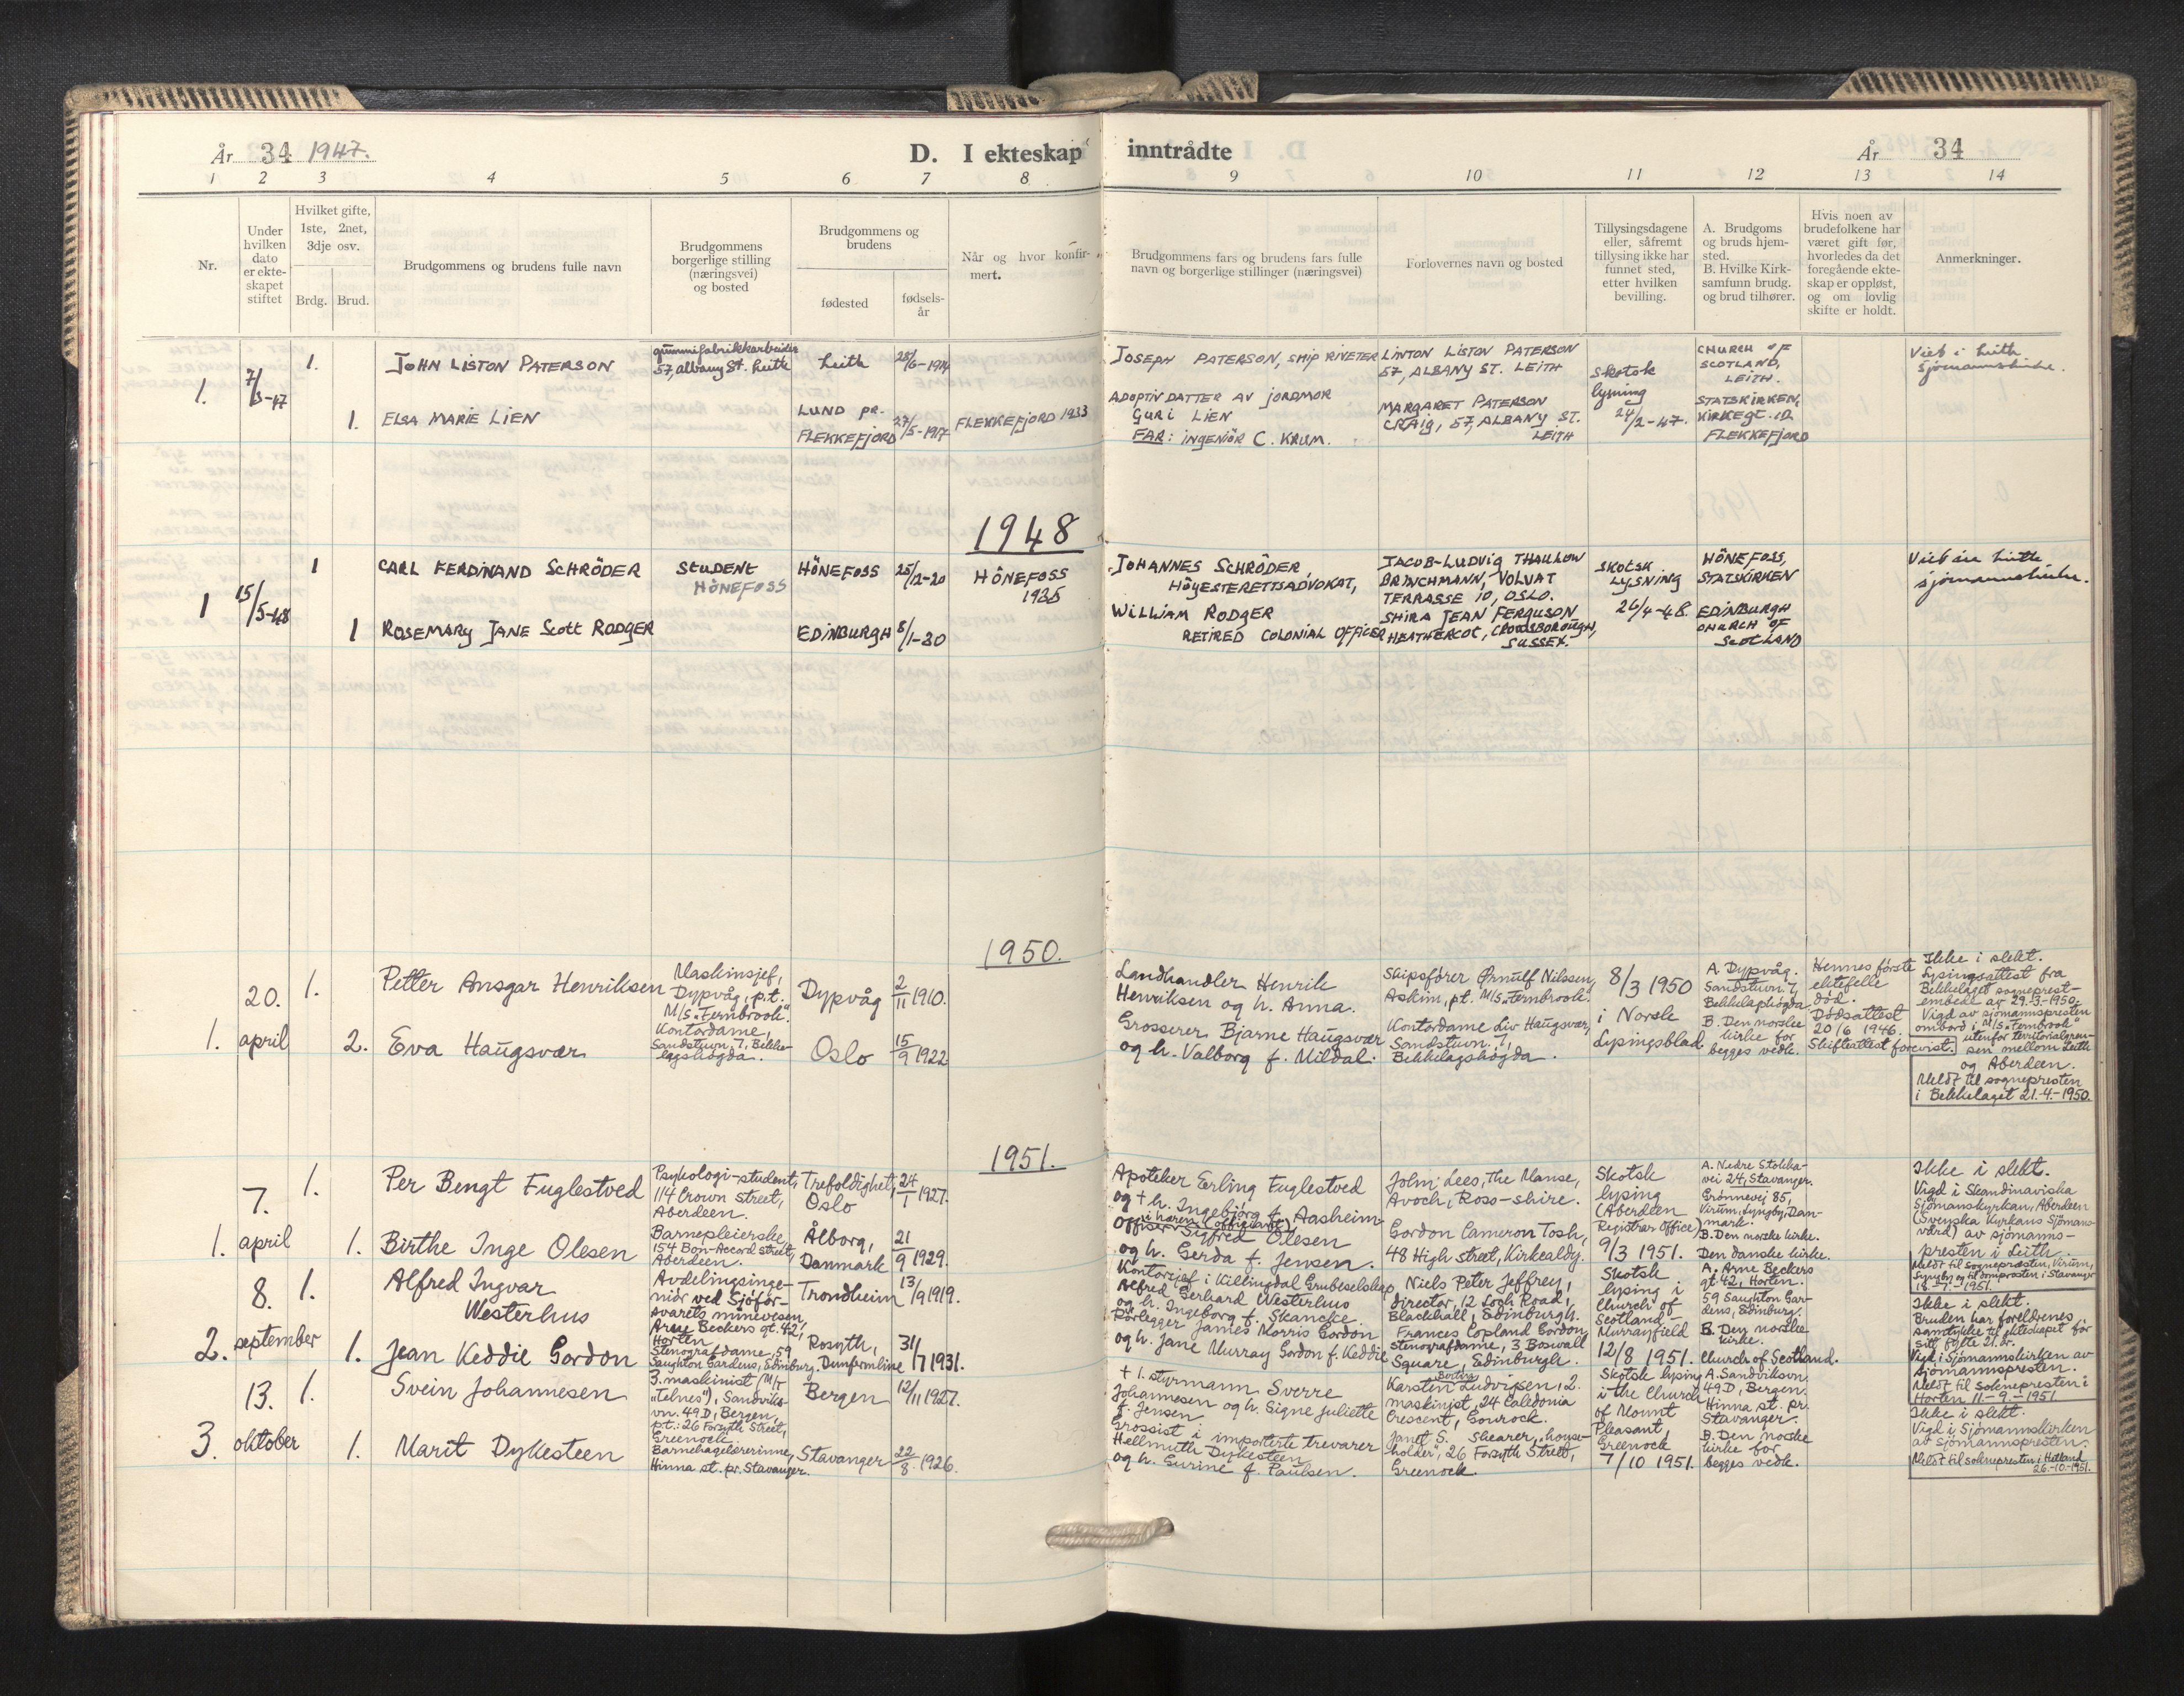 År 34 1947.
D. I ekteskap inntrådte
År 34
1 2 3 4 5 6 7 8 9 10 11 12 13 14
Nr.
Under
hvilken
dato
er ekte-
skapet
stiftet
Hvilket gifte,
1ste, 2net,
3dje osv.
Brdg. Brud.
Brudgommens og brudens fulle navn
Brudgommens
borgerlige stilling
(næringsvei)
og bosted
Brudgommens og
brudens
fødested
fødsels-
år
Når og hvor konfir-
mert.
Brudgommens fars og brudens fars fulle
navn og borgerlige stillinger (næringsvei)
Forlovernes navn og bosted
Tillysingsdagene
eller, såfremt
tillysing ikke har
funnet sted,
etter hvilken
bevilling.
A. Brudgoms
og bruds hjem-
sted.
B. Hvilke Kirk-
samfunn brudg.
og brud tilhører.
Hvis noen av
brudefolkene har
været gift før,
hvorledes da det
foregående ekte-
skap er oppløst,
og om lovlig
skifte er holdt.
Anmerkninger.
1.
7/3-47
1.
JOHN LISTON PATERSON
gummifabrikkarbeider
57, albany St. Leith
Leith
28/6-1914
JOSEPH PATERSON, SHIP RIVETER
LINTON LISTON PATERSON
57, ALBANY ST. LEITH
Skotsk
lysning
24/2-47.
CHURCH OF
SCOTLAND,
LEITH.
Viet i Leith
sjömannskirke.
1.
ELSA MARIE LIEN
LUND pr.
FLEKKEFJORD
27/5-1917
FLEKKEFJORD 1933
ADOPTIVDATTER AV JORDMOR
GURI LIEN
FAR: INGENIÖR C. KRUM.
MARGARET PATERSON
CRAIG, 57, ALBANY ST.
LEITH
STATSKIRKEN,
KIRKEGT. 12
FLEKKEFJORD
1948
1
15/5-48
1
CARL FERDINAND SCHRÖDER
STUDENT
HÖNEFOSS
HÖNEFOSS
25/12-20
HÖNEFOSS
1935
JOHANNES SCHRÖDER,
HÖYESTERETTSADVOKAT,
JACOB-LUDVIG THAULOW
BRINCHMANN, VOLVAT
TERRASSE 10, OSLO.
SKOTSK
LYSNING
26/4-48.
HÖNEFOSS,
STATSKIRKEN
Viet i Leith
sjömannskirke.
1
ROSEMARY JANE SCOTT RODGER
EDINBURGH
8/1-30
WILLIAM RODGER
RETIRED COLONIAL OFFICER
SHIRA JEAN FERGUSON
HEATHERCOT, CROWSBOROUGH,
SUSSEX.
EDINBURGH
CHURCH OF
SCOTLAND
1950.
1.
20.
april
1.
Petter Ansgar Henriksen
Maskinsjef,
Dypvåg, p.t.
M/S. "Fernbrook".
Dypvåg
2/11 1910.
Landhandler Henrik
Henriksen og h. Anna.
Skipsfører Ørnulf Nilssen,
Askim, pt. M/S. "Fernbrook".
8/3 1950
i Norsk
Lysingsblad.
A. Dypvåg.
Sandstuvn. 7,
Bekkelagshøgda
B. Den norske
kirke for
begges vedk.
Hennes første
ektefelle
død.
Dødsattest
20/6 1946.
Skifteattest forevist.
Ikke i slekt.
Lysingsattest fra
Bekkelaget sogneprest-
embede av 29.-3.-1950.
Vigd av sjømannspresten
ombord i M/S. "Fernbrook"
utenfor territorialgren-
sen mellom Leith
og Aberdeen.
Meldt til sognepresten
i Bekkelaget 21.-4.-1950.
2.
Eva Haugsvær
Kontordame,
Sandstuvn. 7, Bekke-
lagshøgda.
Oslo
15/9 1922
Grosserer Bjarne Haugsvær
og h. Valborg f. Mildal.
Kontordame Liv Haugsvær,
Sandstuvn. 7,
Bekkelagshøgda.
1951.
1.
7.
april
1.
Per Bengt Fuglestved
Psykologi-student,
114 Crown Street,
Aberdeen.
Trefoldighet,
Oslo
24/1 1927.
Apoteker Erling Fuglestved
og + h. Ingebjørg f. Aasheim
John Lees, The Manse,
Avoch, Ross-shire.
Skotsk
lysing
(Aberdeen
Registrar Office)
9/3 1951.
A. Nedre Stokka-
vei 24, Stavanger.
Grønnevej 85,
Virum, Lyngby, Dan-
mark.
B. Den norske kirke.
Den danske kirke.
Ikke i slekt.
Vigd i Skandinaviska
Sjömanskyrkan, Aberdeen
(Svenska Kyrkans Sjömans-
vård) av sjømanns-
presten i Leith.
Meldt til sognepresten, Virum,
Lyngby og til domprosten i Stavanger
18.-7.-1951.
1.
Birthe Inge Olesen
Barnepleierske,
154 Bon-Accord street,
Aberdeen.
Ålborg,
Danmark
21/9 1929.
Offiser i hæren Sigfred Olesen
og h. Gerda f. Jensen.
Gordon Cameron Tosh,
48 High street, Kirkcaldy.
2.
8.
september
1.
Alfred Ingvar
Westerhus
Avdelingsinge-
niør ved Sjøfor-
svarets minevesen,
Arne Beckers gt. 42,
Horten
Trondheim
13/9 1919.
Kontorsjef i Killingdal Grubeselskap
Alfred Gerhard Westerhus
og h. Ingeborg f. Skancke.
Niels Peter Jeffrey,
director, 12 Loch Road,
Blackhall, Edinburgh.
Skotsk
lysing i
Church of
Scotland-
Murrayfield
12/8 1951.
A. Arne Beckers
gt. 42, Horten.
59 Saughton Gar-
dens, Edinburg.
B. Den norske
kirke.
Church of Scotland.
Ikke i slekt.
Bruden har foreldrenes
samtykke til ekteskapet før
sitt fylte 21. år.
Vigd i Sjømannskirken av
sjømannspresten.
Meldt til sokneprestен i
Horten 11-9-1951
1.
Jean Keddie Gordon
Stenografdame, 59
Saughton Gardens, Edinburg.
Rosyth,
Dunfermline
31/7 1931.
Rørlegger James Morris Gordon
og h. Jane Murray Gordon f. Keddie
Frances Copland Gordon,
stenografdame, 3 Boswall
Square, Edinburgh.
3.
13.
oktober
1.
Svein Johannesen
3. maskinist (M/T
"Telnes"), Sandviks-
vn. 49 D, Bergen,
p.t.: 26 Forsyth Street,
Greenock.
Bergen
12/11 1927.
+ 1. styrmann Sverre
Johannesen og h. Signe Juliette
f. Jensen.
Karsten Ludvigsen, 2.
maskinist, 24 Caledonia
Crescent, Gourock.
Skotsk lysing
i the Church
of Mount
Pleasant,
Greenock
7/10 1951.
A. Sandviksvn.
49 D, Bergen.
Hinna st. pr.
Stavanger.
B. Den norske
kirke for
begges vedk.
Ikke i slekt.
Vigd i Sjømannskirken
av sjømannspresten.
Meldt til soknepresten i Hetland
26.-10.-1951.
1.
Marit Dykesteen
Barnehagelærerinne,
Hinna st. pr. Stavanger.
Stavanger
22/8 1926.
Grossist i importerte trevarer
Hellmuth Dykesteen
og h. Gurine f. Paulsen.
Janet S. Shearer, "house-
holder", 26 Forsyth Street,
Greenock.